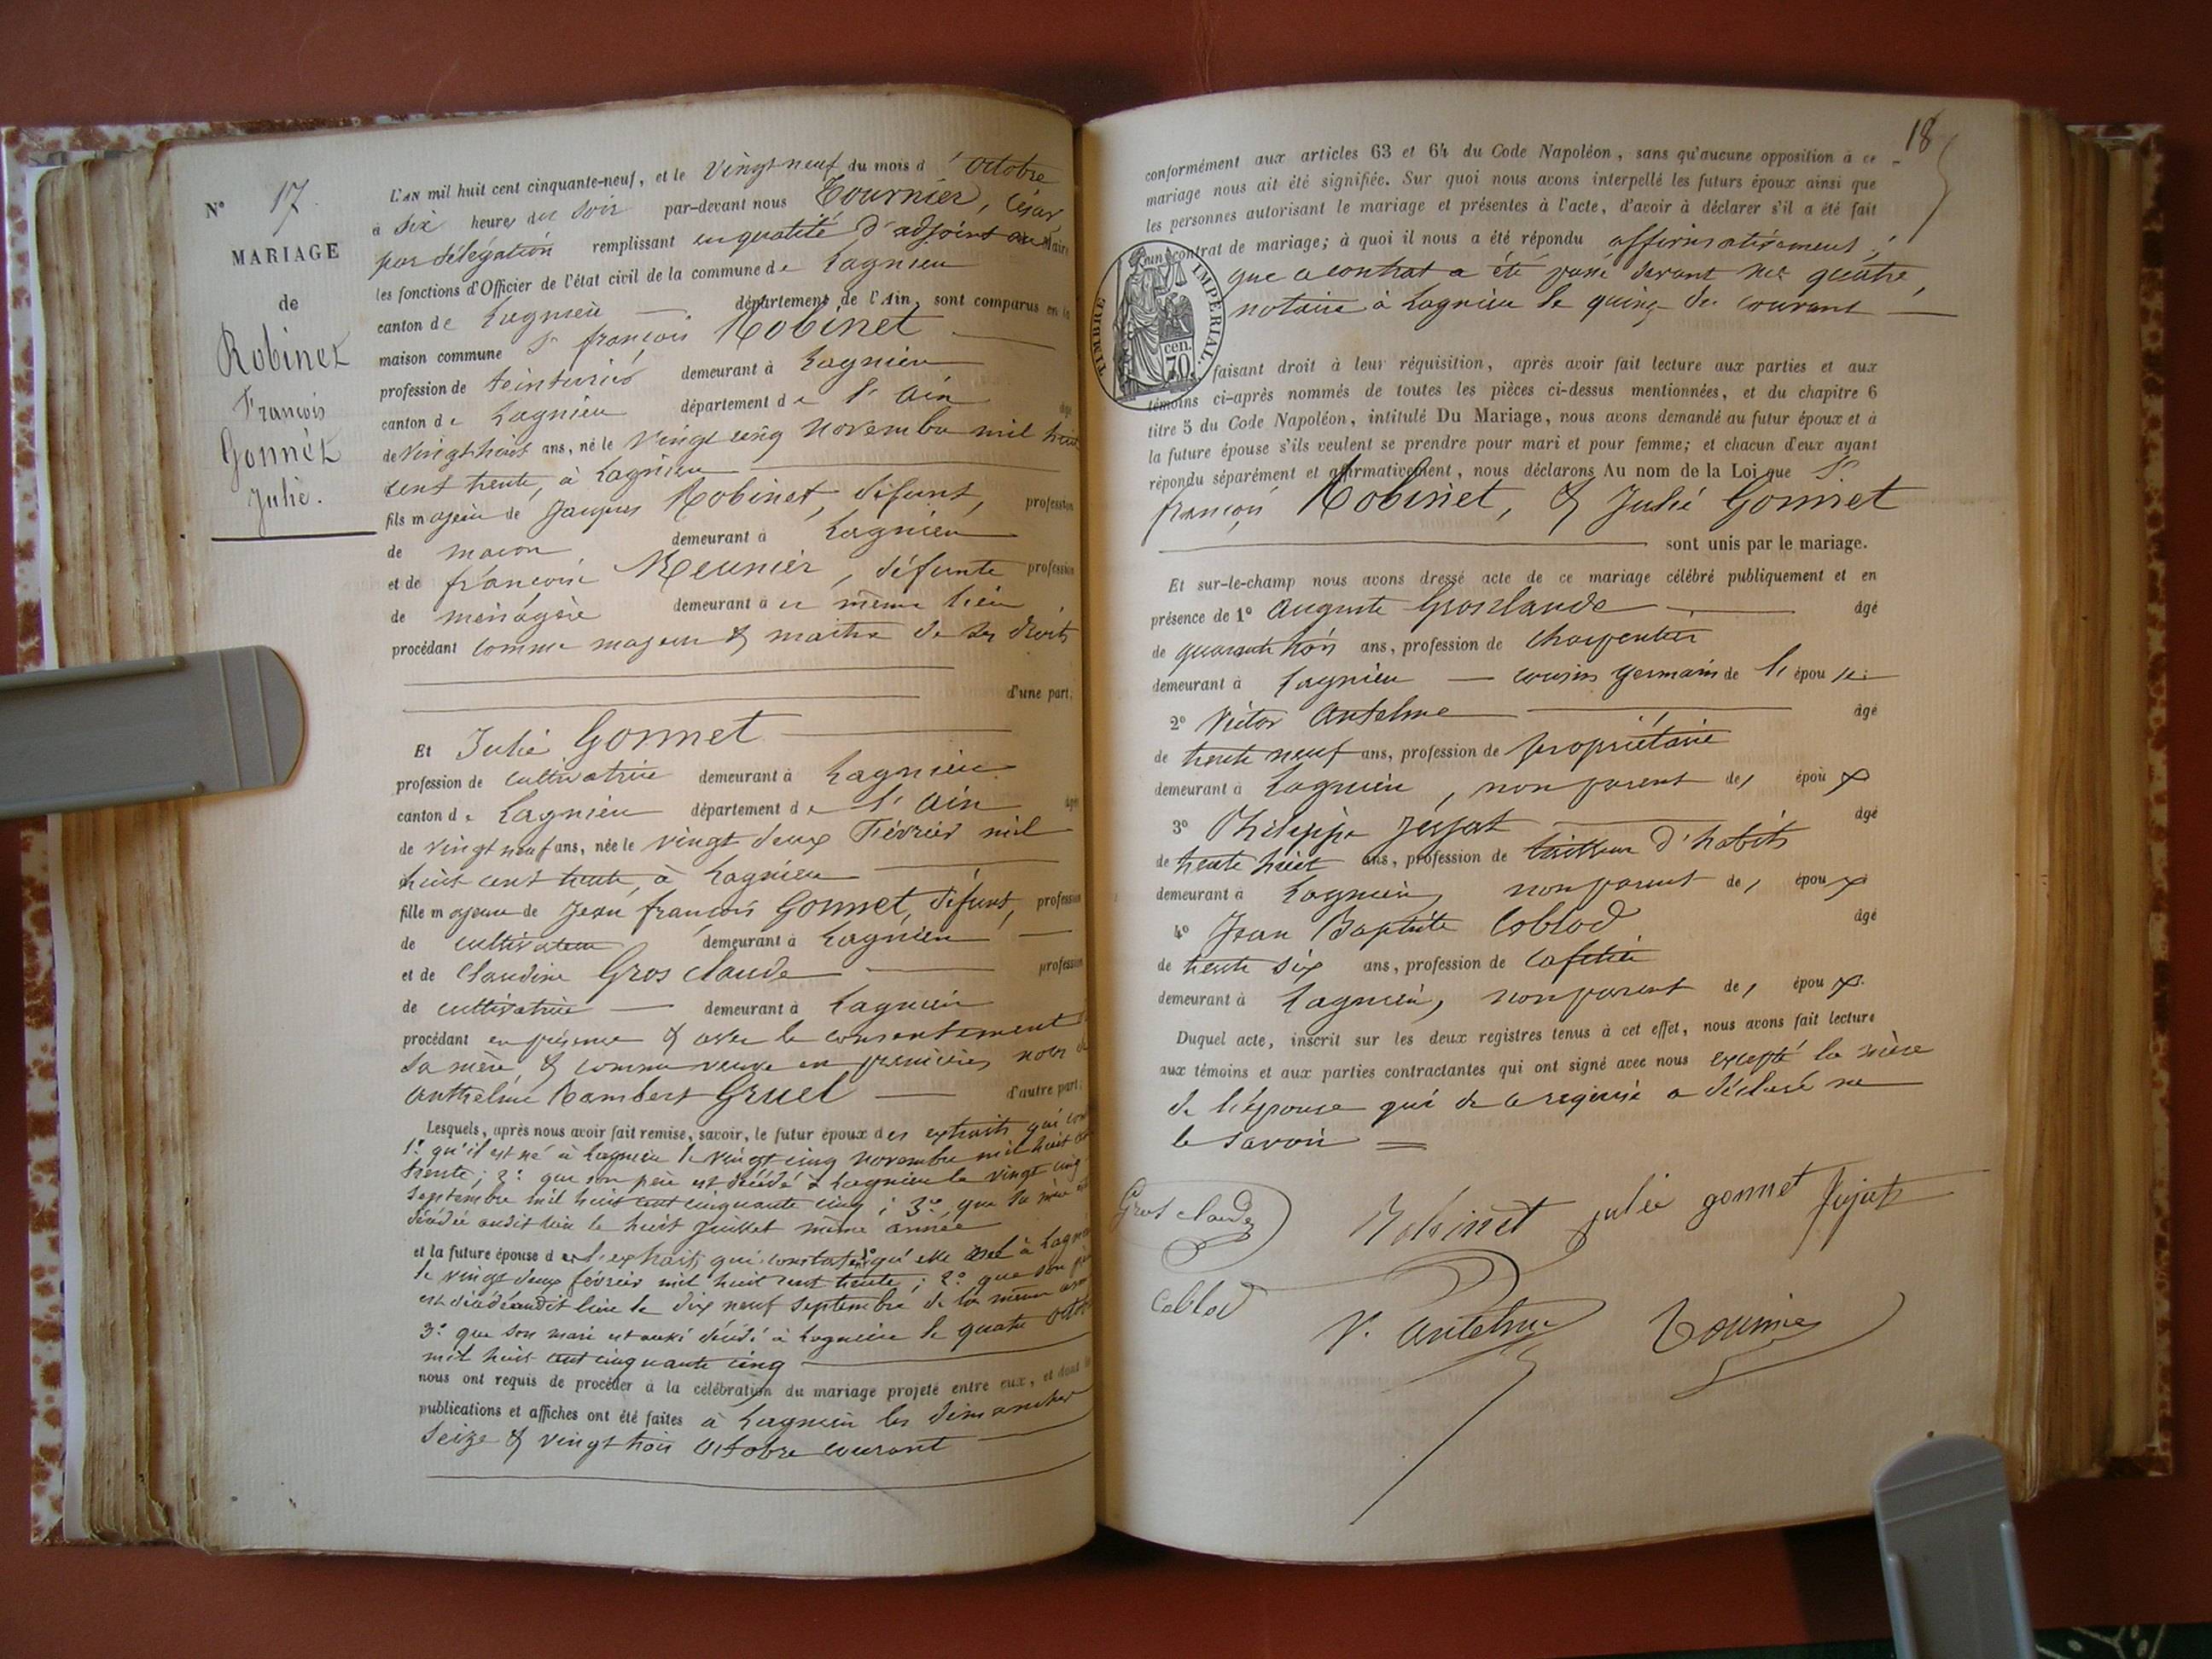 N° 17.
MARIAGE
de
Robinet
François
Gonnet
Julie.
L'AN mil huit cent cinquante-neuf, et le vingt neuf du mois d'octobre
à six heures du soir par-devant nous Tournier, César
par délégation remplissant en qualité d'adjoint au Maire
les fonctions d'Officier de l'état civil de la commune de Lagnieu
canton de Lagnieu département de l'Ain, sont comparus en la
maison commune Sr françois Robinet
profession de teinturier demeurant à Lagnieu
canton de Lagnieu département de l'Ain âgé
de vingt huit ans, né le vingt cinq novembre mil huit
cent trente, à Lagnieu
fils majeur de Jacques Robinet, défunt, profession
de maçon demeurant à Lagnieu
et de françoise Meunier, défunte profession
de ménagère demeurant à ce même lieu
procédant comme majeur & maître de ses droits
d'une part;
Et Julie Gonnet
profession de cultivatrice demeurant à Lagnieu
canton de Lagnieu département de l'Ain âgée
de vingt neuf ans, née le vingt deux Février mil
huit cent trente, à Lagnieu
fille majeure de Jean françois Gonnet, défunt, profession
de cultivateur demeurant à Lagnieu
et de Claudine Gros claude profession
de cultivatrice demeurant à Lagnieu
procédant en présence & avec le consentement de
sa mère & comme veuve en premières noces de
Anthelme Rambert Gruel d'autre part;
Lesquels, après nous avoir fait remise, savoir, le futur époux des extraits qui
1° qu'il est né à Lagnieu le vingt cinq novembre mil huit cent
trente; 2° que son père est décédé à Lagnieu le vingt cinq
septembre mil huit cent cinquante cinq; 3° que sa mère est
décédée audit lieu le huit juillet même année
et la future épouse des extraits qui constatent 1° qu'elle est née à Lagnieu
le vingt deux février mil huit cent trente; 2° que son père
est décédé audit lieu le dix neuf septembre de la même année
3° que son mari est aussi décédé à Lagnieu le quatre octobre
mil huit cent cinquante cinq
nous ont requis de procéder à la célébration du mariage projeté entre eux, et dont les
publications et affiches ont été faites à Lagnieu les dimanches
seize & vingt trois octobre courant
18
conformément aux articles 63 et 64 du Code Napoléon, sans qu'aucune opposition à ce
mariage nous ait été signifiée. Sur quoi nous avons interpellé les futurs époux ainsi que
les personnes autorisant le mariage et présentes à l'acte, d'avoir à déclarer s'il a été fait
un contrat de mariage; à quoi il nous a été répondu affirmativement,
que ce contrat a été passé devant Me quatre,
notaire à Lagnieu le quinze du courant
TIMBRE IMPÉRIAL
70 cen.
faisant droit à leur réquisition, après avoir fait lecture aux parties et aux
témoins ci-après nommés de toutes les pièces ci-dessus mentionnées, et du chapitre 6
titre 5 du Code Napoléon, intitulé Du Mariage, nous avons demandé au futur époux et à
la future épouse s'ils veulent se prendre pour mari et pour femme; et chacun d'eux ayant
répondu séparément et affirmativement, nous déclarons Au nom de la Loi que Sr
françois Robinet, & Julie Gonnet
sont unis par le mariage.
Et sur-le-champ nous avons dressé acte de ce mariage célébré publiquement et en
présence de 1° Auguste Grosclaude âgé
de quarante trois ans, profession de charpentier
demeurant à Lagnieu cousin germain de l'épouse
2° Victor Antelme âgé
de trente neuf ans, profession de propriétaire
demeurant à Lagnieu, non parent des époux
3° Philippe Jujat âgé
de trente huit ans, profession de tailleur d'habits
demeurant à Lagnieu, non parent des époux
4° Jean Baptiste Coblod âgé
de trente six ans, profession de cafetier
demeurant à Lagnieu, non parent des époux.
Duquel acte, inscrit sur les deux registres tenus à cet effet, nous avons fait lecture
aux témoins et aux parties contractantes qui ont signé avec nous excepté la mère
de l'épouse qui de ce requise a déclaré ne
le savoir
Gros claude Robinet julie gonnet Jujat
Coblod V. Antelme Tournier